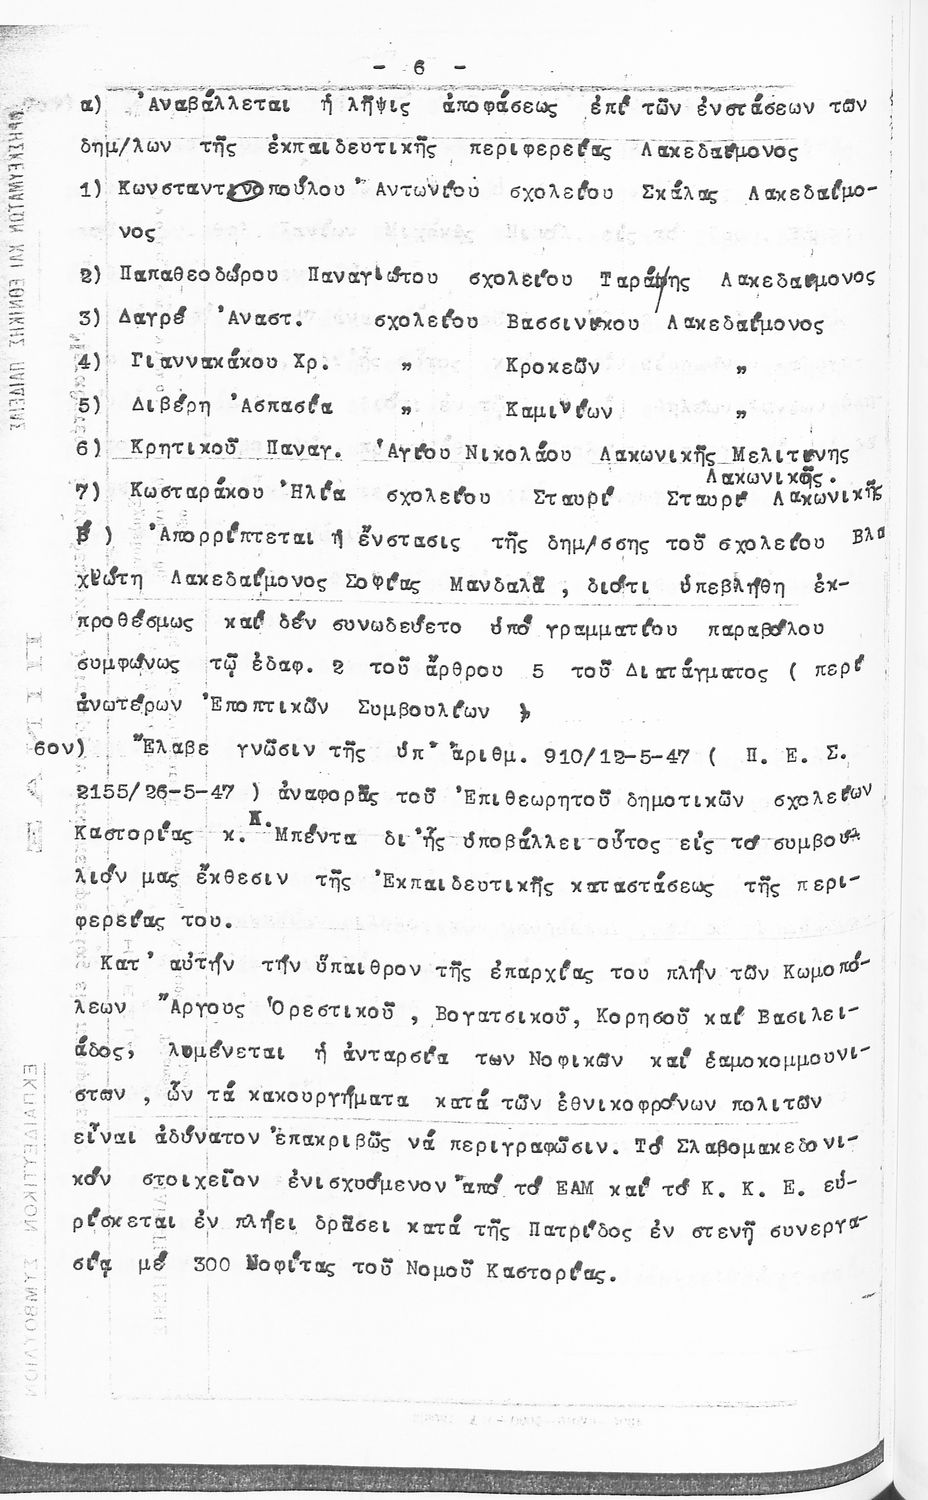 - 6 -
α) Ἀναβάλλεται ἡ λῆψις ἀποφάσεως ἐπί τῶν ἐνστάσεων των
δημ/λων τῆς ἐκπαιδευτικῆς περιφερείας Λακεδαίμονος
1) Κωνσταντινοπούλου Ἀντωνίου σχολείου Σκάλας Λακεδαίμο-
νος
2) Παπαθεοδώρου Παναγιώτου σχολείου Ταράψης Λακεδαίμονος
3) Δαγρέ Ἀναστ. σχολείου Βασσινίκου Λακεδαίμονος
4) Γιαννακάκου Χρ. " Κροκεῶν "
5) Διβέρη Ἀσπασία " Καμινίων "
6) Κρητικοῦ Παναγ. Ἁγίου Νικολάου Λακωνικῆς Μελιτίνης
Λακωνικῆς.
7) Κωσταράκου Ἠλία σχολείου Σταυρί Σταυρί Λακωνικῆς
β ) Ἀπορρίπτεται ἡ ἔνστασις τῆς δημ/σσης τοῦ σχολείου Βλα
χιώτη Λακεδαίμονος Σοφίας Μανδαλᾶ , διότι ὑπεβλήθη ἐκ-
προθέσμως καί δέν συνωδεύετο ὑπό γραμματίου παραβόλου
συμφώνως τῷ ἐδαφ. 2 τοῦ ἄρθρου 5 τοῦ Διατάγματος ( περί
ἀνωτέρων Ἐποπτικῶν Συμβουλίων )
6ον) Ἔλαβε γνῶσιν τῆς ὑπ' ἀριθμ. 910/12-5-47 ( Π. Ε. Σ.
2155/26-5-47 ) ἀναφορᾶς τοῦ Ἐπιθεωρητοῦ δημοτικῶν σχολείων
Καστορίας κ. Κ. Μπέντα δι' ἧς ὑποβάλλει οὗτος εἰς τό συμβού-
λιόν μας ἔκθεσιν τῆς Ἐκπαιδευτικῆς καταστάσεως τῆς περι-
φερείας του.
Κατ' αὐτήν τήν ὕπαιθρον τῆς ἐπαρχίας του πλήν τῶν Κωμοπό-
λεων Ἄργους Ὀρεστικοῦ , Βογατσικοῦ, Κορησοῦ καί Βασιλει-
άδος, λυμένεται ἡ ἀνταρσία των Νοφικῶν καί ἐαμοκομμουνι-
στων , ὧν τά κακουργήματα κατά τῶν ἐθνικοφρόνων πολιτῶν
εἶναι ἀδύνατον ἐπακριβῶς νά περιγραφῶσιν. Τό Σλαβομακεδονι-
κόν στοιχεῖον ἐνισχυόμενον ἀπό τό ΕΑΜ καί τό Κ. Κ. Ε. εὑ-
ρίσκεται ἐν πλήει δράσει κατά τῆς Πατρίδος ἐν στενῇ συνεργα-
σίᾳ μέ 300 Νοφίτας τοῦ Νομοῦ Καστορίας.